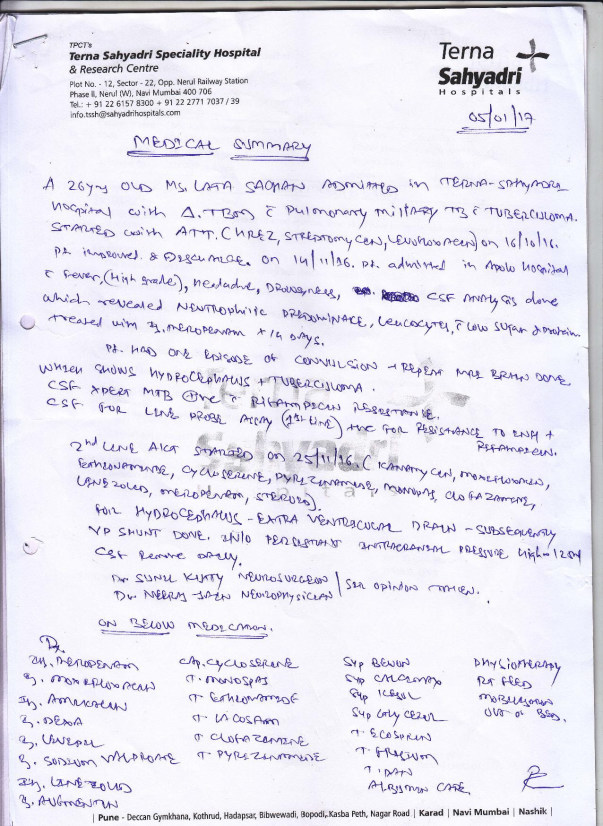 TPCT's
Terna Sahyadri Speciality Hospital
& Research Centre
Plot No. - 12, Sector - 22, Opp. Nerul Railway Station
Phase II, Nerul (W), Navi Mumbai 400 706
Tel.: + 91 22 6157 8300 + 91 22 2771 7037 / 39
info.tssh@sahyadrihospitals.com
Terna
Sahyadri
Hospitals
05/01/17
MEDICAL SUMMARY
A 26yrs OLD MS. LATA SACHAN ADMITTED in TERNA-SAHYADRI
Hospital with Δ. c̄ Pulmonary military TB c̄ TUBERCULOMA.
STARTED with ATT. (HREZ, STREPTOMYCIN, LEVOFLOXACIN) on 16/10/16.
Pt. improved & DISCHARGE. on 14/11/16. Pt. admitted in Apolo Hospital
c̄ fever, (High grade), Headache, DROWSYNESS, CSF ANALYSIS done
which revealed NEUTROPHILIC PREDOMINANCE, LEUCOCYTES, c̄ low sugar & protein
treated with MEROPENAM x 14 DAYS.
Pt. HAD ONE EPISODE OF CONVULSION → REPEAT MRI BRAIN DONE
WHICH SHOWS HYDROCEPHALUS + TUBERCULOMA.
CSF XPERT MTB ⊕ve c̄ RIFAMPICIN RESISTANCE.
CSF FOR LINE PROBE ASSAY (1st line) +ve FOR RESISTANCE TO INH +
RIFAMPICIN.
2nd LINE STARTED ON 25/11/16. (KANAMYCIN, MOXIFLOXACIN,
ETHIONAMIDE, CYCLOSERINE, PYREZINAMIDE, CLOFAZAMINE,
LINEZOLID, MEROPENAM, STEROID).
FOR HYDROCEPHALUS - EXTRA VENTRICULAR DRAIN - SUBSEQUENTLY
VP SHUNT DONE. I/V/O PERSISTANT INTRACRANIAL PRESSURE High
CSF REMOVE DAILY.
Dr. SUNIL KUTTY NEUROSURGEON
Dr. NEERAJ JAIN NEUROPHYSICIAN / OPINION TAKEN.
ON BELOW MEDICATION.
Rx
Inj. MEROPENAM CAP. CYCLOSERINE SYP BEVON PHYSIOTHERAPY
MOXIFLOXACIN T. MONOSPAS SYP CALCIMAX RT FEED
Inj. AMIKACIN T. ETHIONAMIDE SYP MOBILISATION
DEXA T. LACOSAM SYP OUT OF BED.
T. CLOFAZAMINE T. ECOSPRIN
SODIUM VALPROATE T. PYREZINAMIDE T.
Inj. LINEZOLID T.
AUGMENTIN ALBUMIN CARE
| Pune - Deccan Gymkhana, Kothrud, Hadapsar, Bibwewadi, Bopodi, Kasba Peth, Nagar Road | Karad | Navi Mumbai | Nashik |